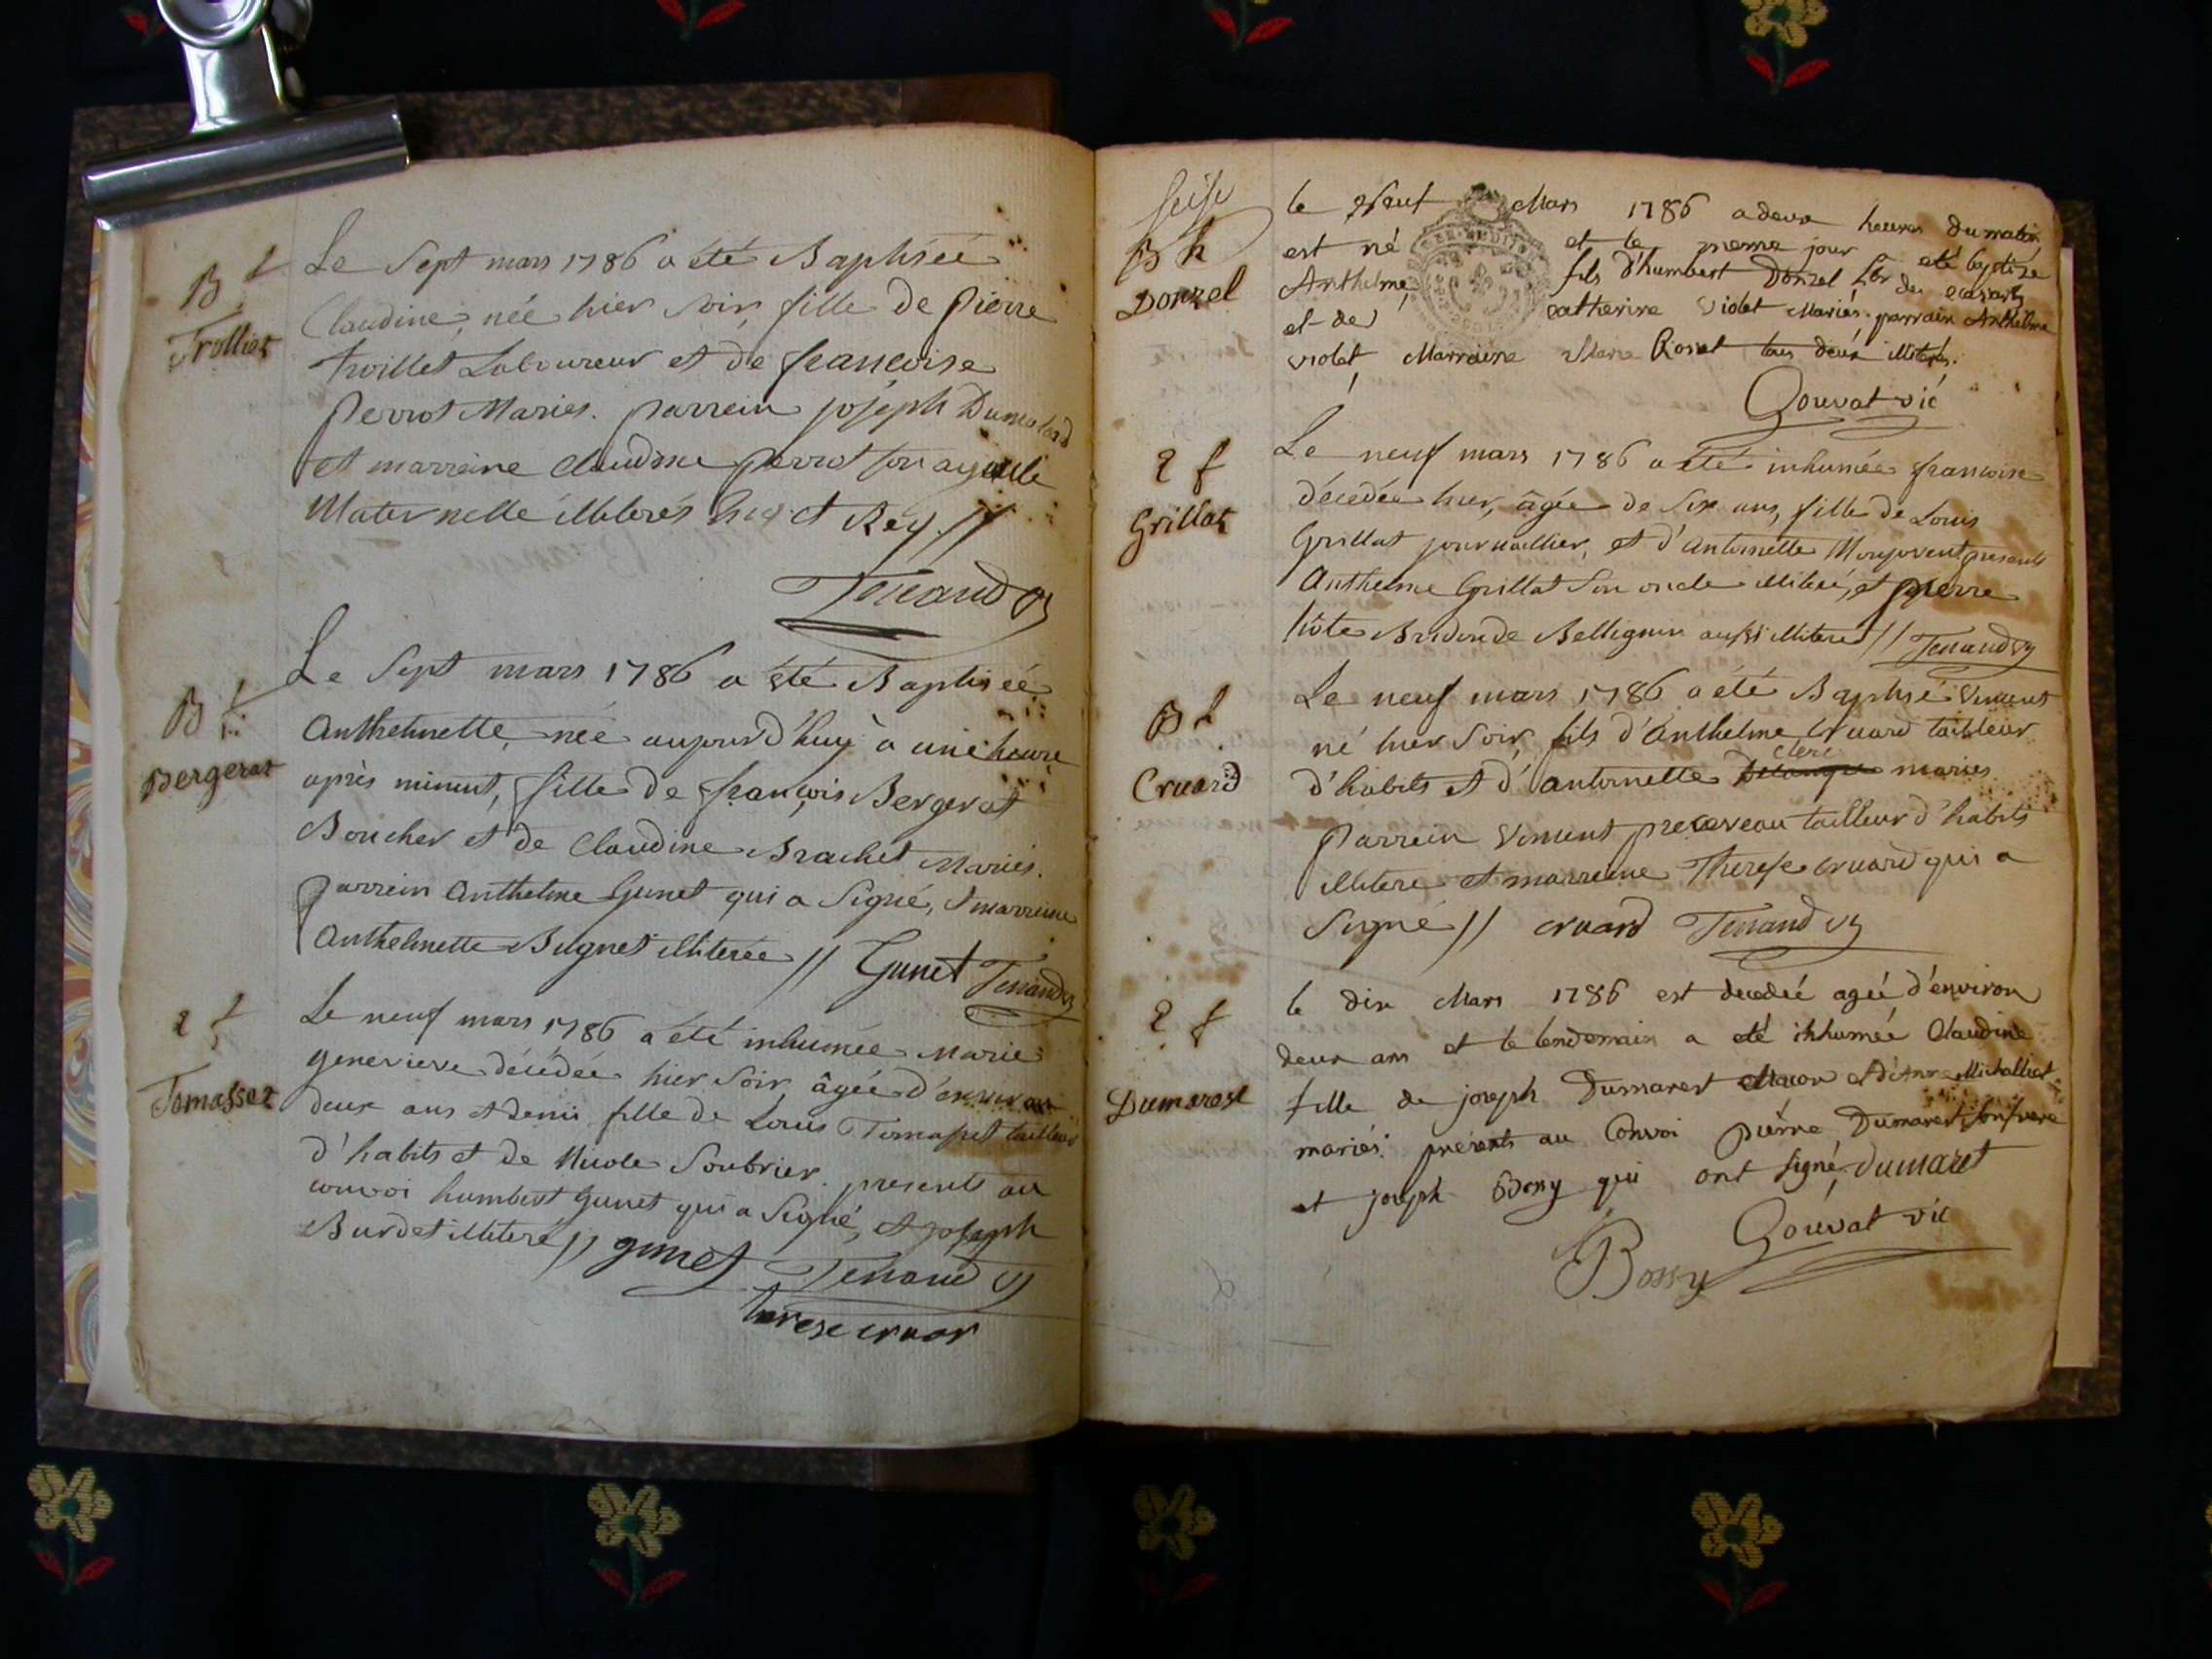 B f
Trolliet
Le Sept mars 1786 a été Baptisée
Claudine, née hier soir, fille de pierre
troillet Laboureur et de françoise
perrot Mariés. parrein joseph Dumolard
et marreine claudine perrot son ayeule
Maternelle illiterés et Rey. //
Tenand vy
B f
Bergerat
Le Sept mars 1786 a été Baptisée
Anthelmette, née aujourd'huy à une heure
après minuit, fille de françois Bergerat
Boucher et de Claudine Brachet Mariés.
parrein Anthelme Gunet qui a Signé, et marreine
Anthelmette Bugnet illiterée // Gunet Tenand vy
f
Tomasset
Le neuf mars 1786 a été inhumée Marie
genevieve décédée hier Soir, âgée d'environ
deux ans et demi fille de Louis Tomasset tailleur
d'habits et de Nicole Soubrier. presents au
convoi humbert gunet qui a Signé, et joseph
Burdet illiteré // gunet Tenand vy
therese cruar
seise
B h
Donzel
le Neuf Mars 1786 a deux heures du matin
est né et le meme jour eté baptize
Anthelme, fils d'humbert Donzel des
et de catherine violet Mariés. parrain Anthelme
violet, Marraine Marie Rosset tous deux illiterés.
Gouvat vic
f
Grillat
Le neuf mars 1786 a été inhumée françoise
décédée hier, âgée de Six ans, fille de Louis
Grillat journallier, et d'Antoinette Monjovent presents
Anthelme Grillat Son oncle illiteré, et pierre
hôte de Bellignin aussi illiteré // Tenand vy
B f
Cruard
Le neuf mars 1786 a été Baptisé Vincent
né hier Soir, fils d'Anthelme Cruard tailleur
clerc
d'habits et d'Antoinette mariés
parrein Vincent precaveau tailleur d'habits
illiteré et marreine Therese cruard qui a
Signé // cruard Tenand vy
f
Dumarest
le dix Mars 1786 est decedée ageé d'environ
deux ans et le lendemain a eté inhumée Claudine
fille de joseph Dumarest Macon et d'Anne Michalliet
mariés. présents au Convoi pierre Dumarest son frere
et joseph Bossy qui ont signé, dumaret
Gouvat vic
Bossy